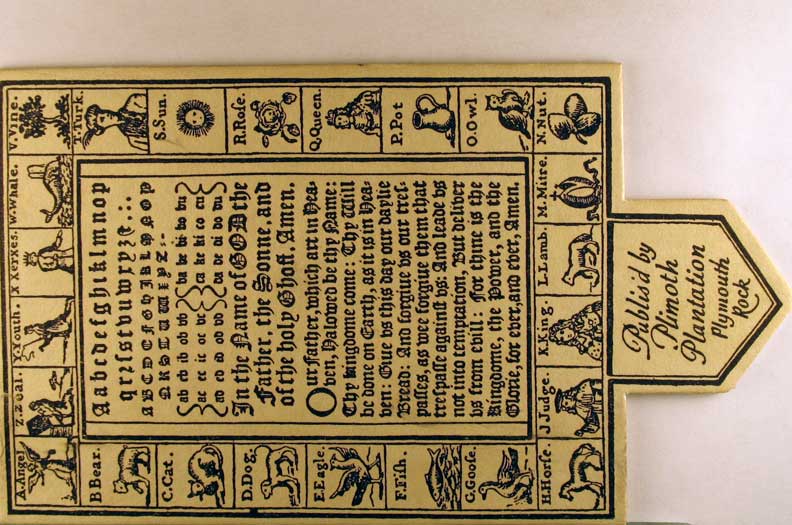 A.Angel
B.Bear.
C.Cat.
D.Dog.
E.Eagle.
F.Fiſh.
G.Gooſe.
H.Horſe.
J.Judge.
K.King.
L.Lamb.
M.Mitre.
N.Nut.
O.Owl.
P.Pot
Q.Queen.
R.Roſe.
S.Sun.
T.Turk.
V.Vine.
W.Whale.
X Xerxes.
Y.Youth.
Z.Zeal.
A a b c d e f g h i k l m n o p
q r ꝛ s ſ t v u w x y z
A B C D E F G H I K L M N O P
Q R S T U W X Y Z
ab eb ib ob vb ba be bi bo bu
ac ec ic oc vc ca ce ci co cu
ad ed id od vd da de di do du
In the Name of GOD the
Father, the Sonne, and
of the holy Ghoſt. Amen.
Our father, which art in Hea-
ven, Halowed be thy Name:
Thy kingdome come: Thy Will
be done on Earth, as it is in Hea-
ven: Giue vs this day our daylie
Bread: And forgiue vs our treſ-
paſſes, as wee forgiue them that
treſpaſſe againſt vs: And leade vs
not into temptation, But deliver
vs from evill: For thine is the
Kingdome, the Power, and the
Glorie, for ever, and ever, Amen.
Publis'd by
Plimoth
Plantation
Plymouth
Rock